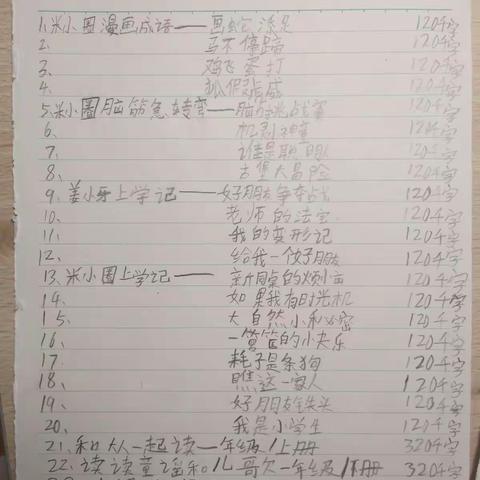 1.米小圈漫画成语——画蛇添足 120千字
2、马不停蹄 120千字
3、鸡飞蛋打 120千字
4、狐假虎威 120千字
5.米小圈脑筋急转弯——脑力挑战赛 120千字
6、机剥对 120千字
7、谁是聪明 120千字
8、古堡大冒险 120千字
9、姜小牙上学记——好朋友争夺战 120千字
10、老师的法宝 120千字
11、我的变形记 120千字
12、给我一个好朋友 120千字
13、米小圈上学记——新同桌的烦恼 120千字
14、如果我有时光机 120千字
15、大自然小秘密 120千字
16、一箩筐的小快乐 120千字
17、耗子是条狗 120千字
18、瞧这一家人 120千字
19、好朋友铁头 120千字
20、我是小学生 120千字
21、和大人一起读一年级/上册 320千字
22、读读童谣和儿歌一年级/下册 320千字